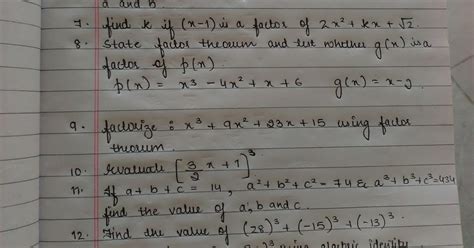 a and b
7. find k if (x-1) is a factor of 2x² + kx + √2.
8. State factor theorum and test whether g(x) is a
factor of p(x).
p(x) = x³ - 4x² + x + 6 g(x) = x-2
9. factorize : x³ + 9x² + 23x + 15 using factor
theorum.
10. Evaluate [3/2 x + 1]³
11. If a + b + c = 14, a² + b² + c² = 74 & a³ + b³ + c³ = 434
find the value of a, b and c.
12. Find the value of (28)³ + (-15)³ + (-13)³.
using identity